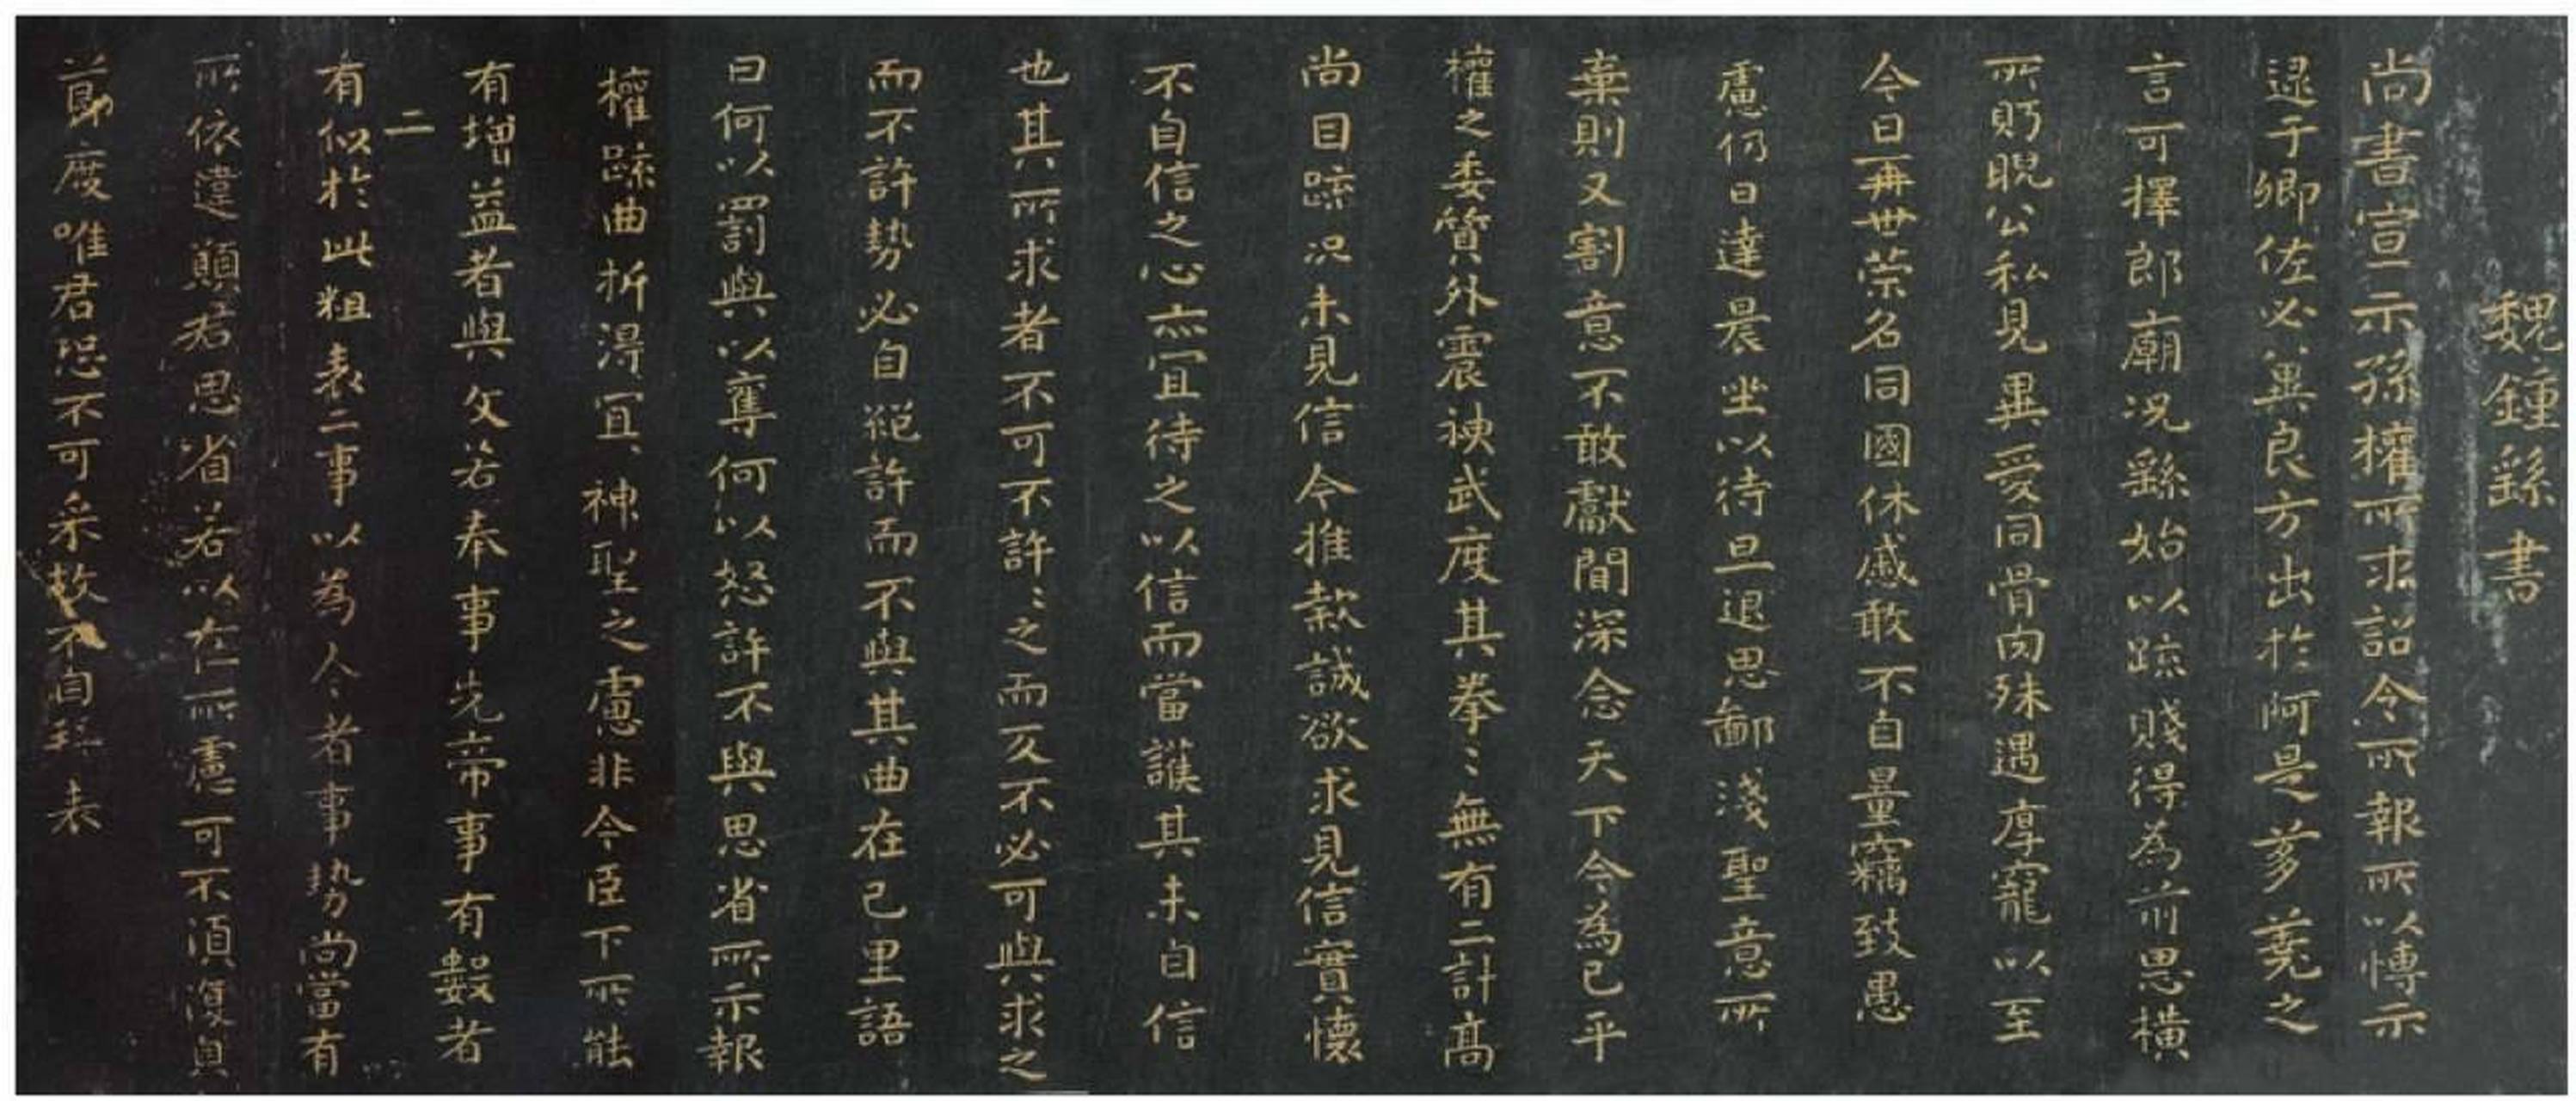 魏鍾繇書
尚書宣示孫權所求詔令所報所以博示
逮于卿佐必冀良方出於阿是芻蕘之
言可擇郎廟況繇始以疏賤得為前恩橫
所眄睨公私見異愛同骨肉殊遇厚寵以至
今日再世榮名同國休慼敢不自量竊致愚
慮仍日達晨坐以待旦退思鄙淺聖意所
棄則又割意不敢獻聞深念天下今為已平
權之委質外震神武度其拳〻無有二計高
尚自疏況未見信今推款誠欲求見信實懷
不自信之心亦宜待之以信而當護其未自信
也其所求者不可不許〻之而反不必可與求之
而不許勢必自絕許而不與其曲在己里語
曰何以罰與以奪何以怒許不與思省所示報
權疏曲折得宜神聖之慮非今臣下所能
有增益者與文若奉事先帝事有數者
有似於此粗表二事以為今者事勢尚當有
二
所依違願君思省若以在所慮可不須復皃
節度唯君恐不可采故不自拜表